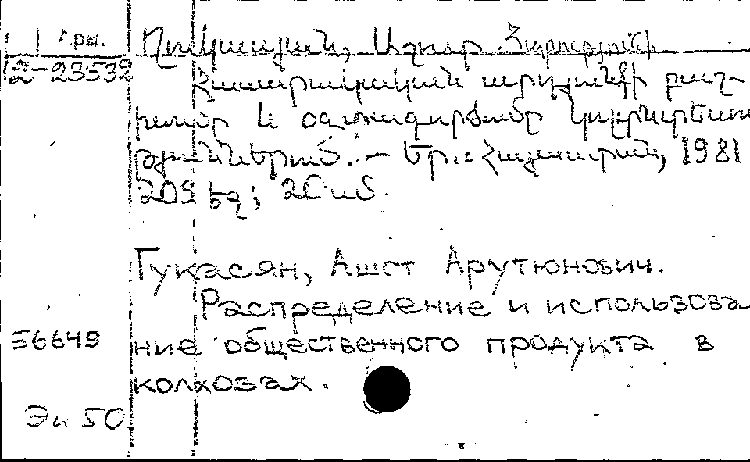 Ղուկասյան, Աշոտ Հարությունի
2-23532
Հասարակական արդյունքի բաշ-
խումը և օգտագործումը կոլտնտեսու
թյուններում. - Եր.: Հայաստան, 1981
209 էջ; 20 սմ.
Гукасян, Ашот Арутюнович.
Распределение и использова
56649 ние общественного продукта в
колхозах.
Эи 50